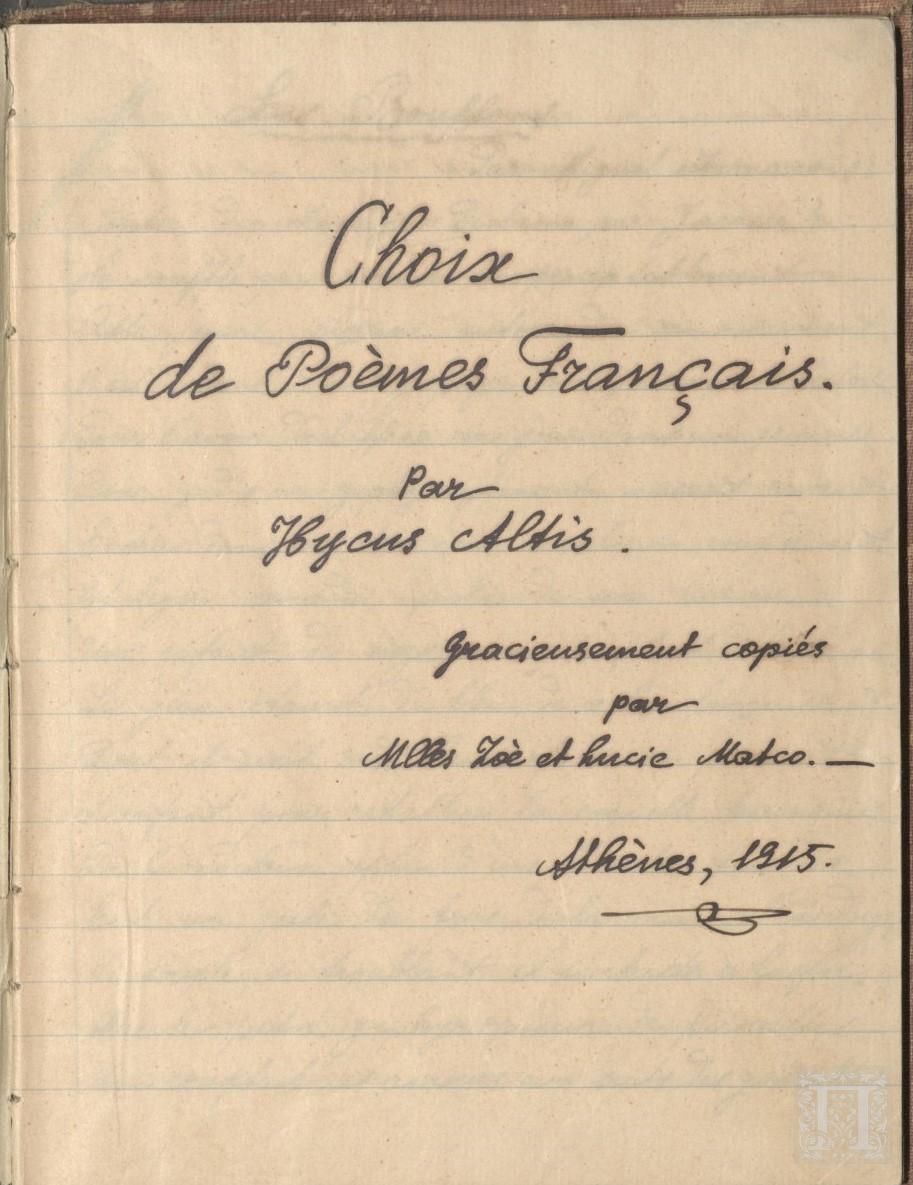 Choix
de Poèmes Français.
Par
Hycus Altis.
Gracieusement copiés
par
Mlles Zoè et Lucie Matco. —
Athènes, 1915.